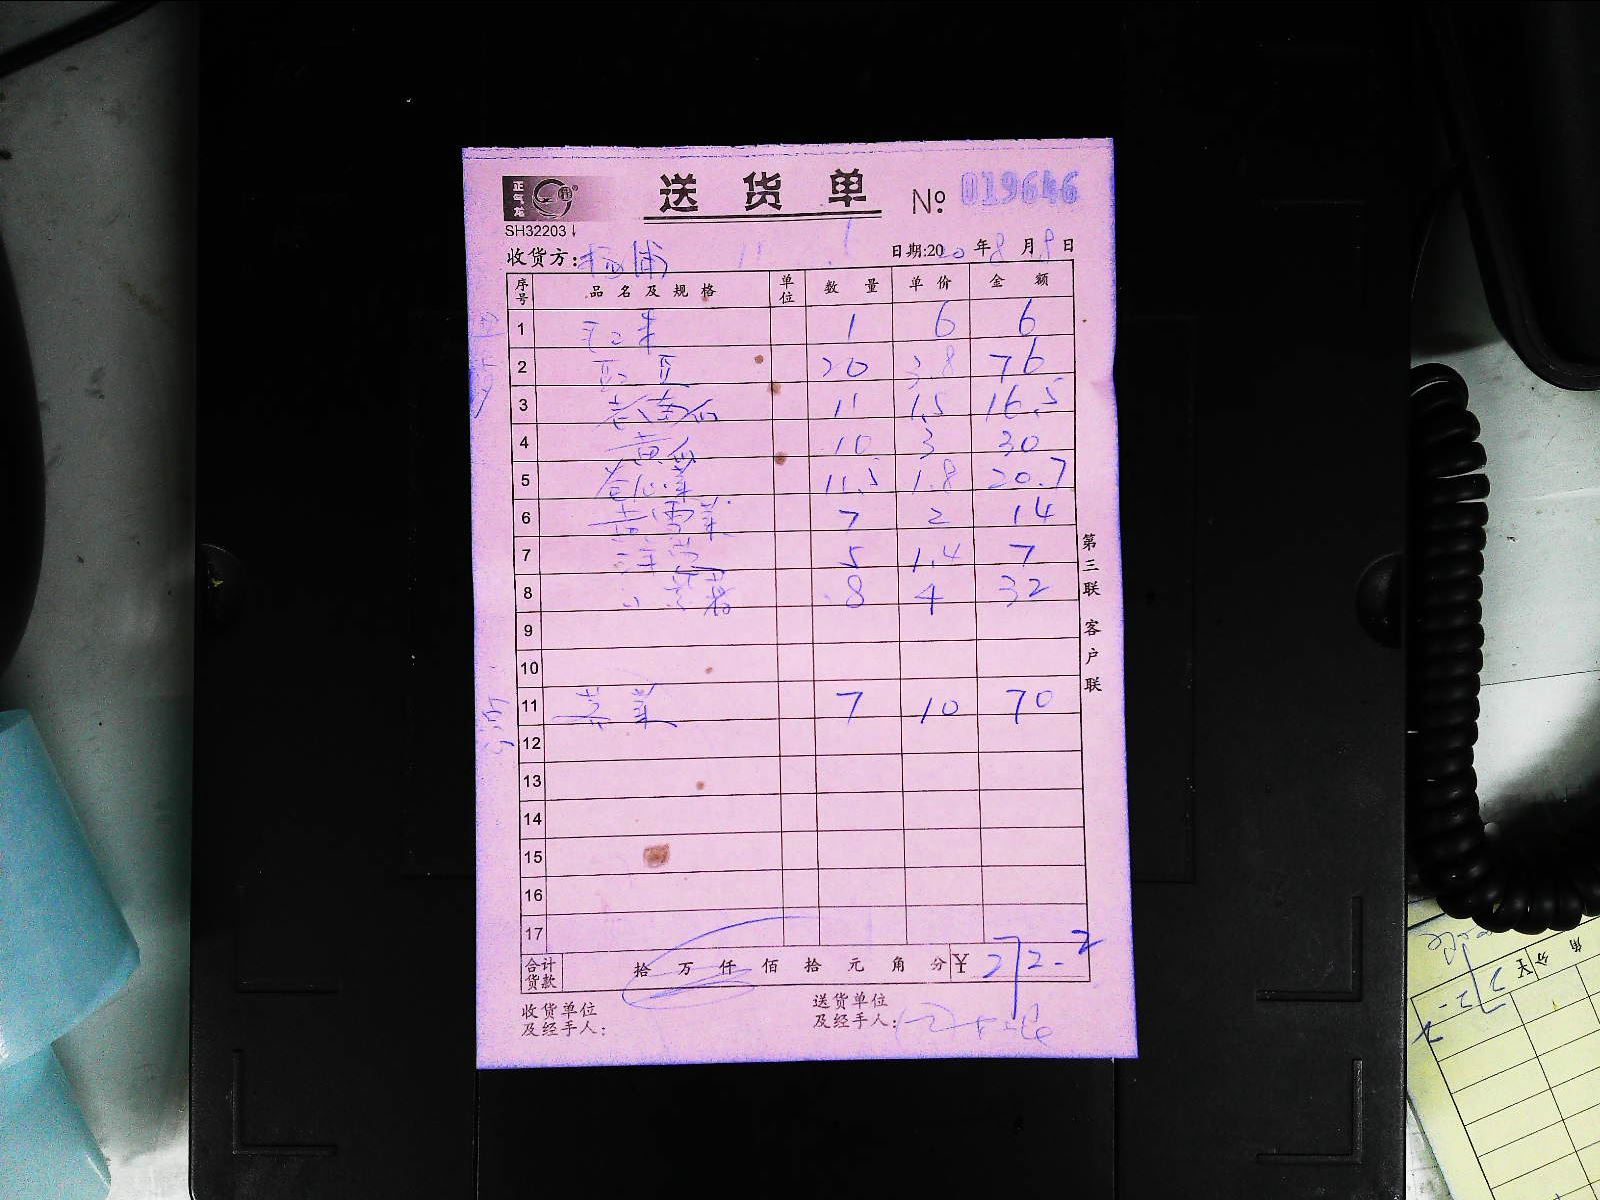 正气龙
送 货 单 № 019646
SH32203
收货方: 杨浦 日期:2020 年 8 月 9 日
序号 品名及规格 单位 数量 单价 金额
1 1 6 6
2 豇豆 20 3.8 76
3 老南瓜 11 1.5 16.5
4 黄瓜 10 3 30
5 卷心菜 11.5 1.8 20.7
6 7 2 14
7 洋 5 1.4 7
8 小 8 4 32
9
10
11 菜 7 10 70
12
13
14
15
16
17
合计货款 拾 万 仟 佰 拾 元 角 分 ¥ 272.2
收货单位及经手人: 送货单位及经手人:
第三联 客户联
角 分 ¥ 272.2